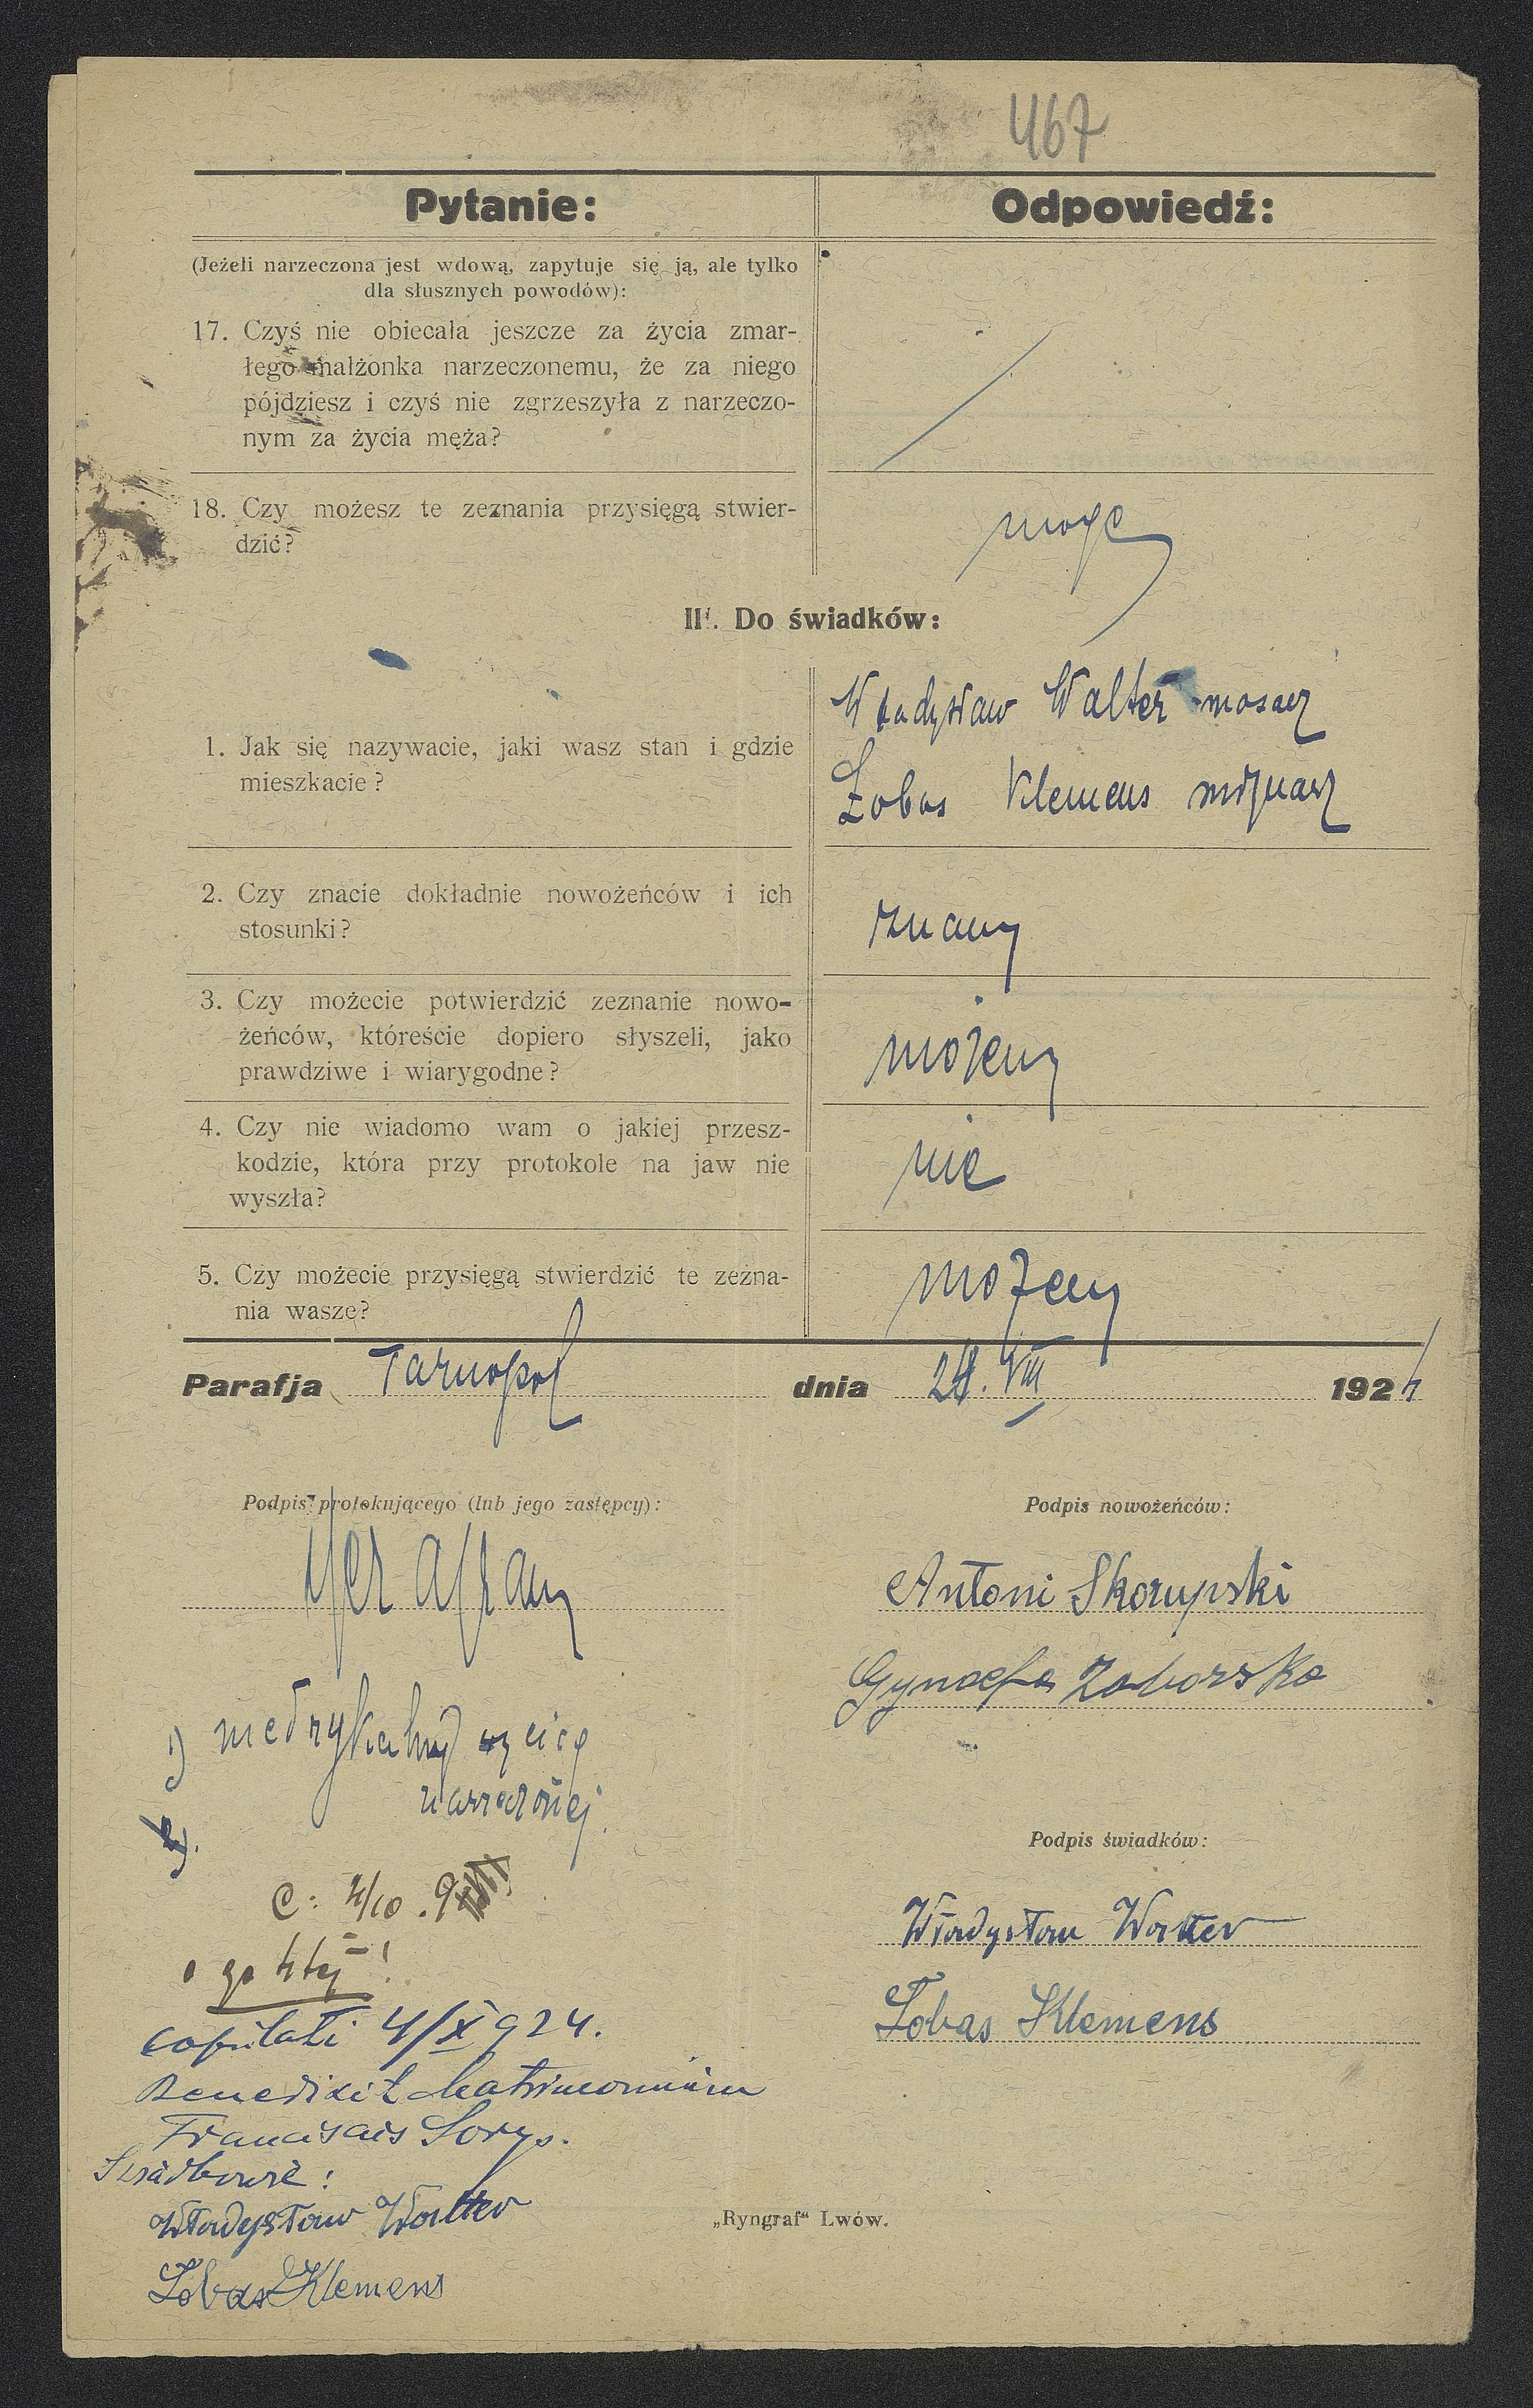 467
Pytanie: Odpowiedź:
(Jeżeli narzeczona jest wdową, zapytuje się ją, ale tylko
dla słusznych powodów):
17. Czyś nie obiecała jeszcze za życia zmar-
łego małżonka narzeczonemu, że za niego
pójdziesz i czyś nie zgrzeszyła z narzeczo-
nym za życia męża?
18. Czy możesz te zeznania przysięgą stwier-
dzić?
mogę
III. Do świadków:
1. Jak się nazywacie, jaki wasz stan i gdzie
mieszkacie?
Władysław Walter
Łobas Klemens
2. Czy znacie dokładnie nowożeńców i ich
stosunki?
znamy
3. Czy możecie potwierdzić zeznanie nowo-
żeńców, któreście dopiero słyszeli, jako
prawdziwe i wiarygodne?
możemy
4. Czy nie wiadomo wam o jakiej przesz-
kodzie, która przy protokole na jaw nie
wyszła?
nie
5. Czy możecie przysięgą stwierdzić te zezna-
nia wasze?
możemy
Parafja Tarnopol dnia 28. VIII 1924
Podpis protokującego (lub jego zastępcy):
Podpis nowożeńców:
Antoni Skorupski
Zaborska
1)
narzeczonej.
2).
Podpis świadków:
C: 4/10. 9
Władysław Walter
Łobas Klemens
copulati 4/X 924.
Benedixit Matrimonium
Franciscus
Świadkowie:
Władysław Walter
Łobas Klemens
„Ryngraf“ Lwów.